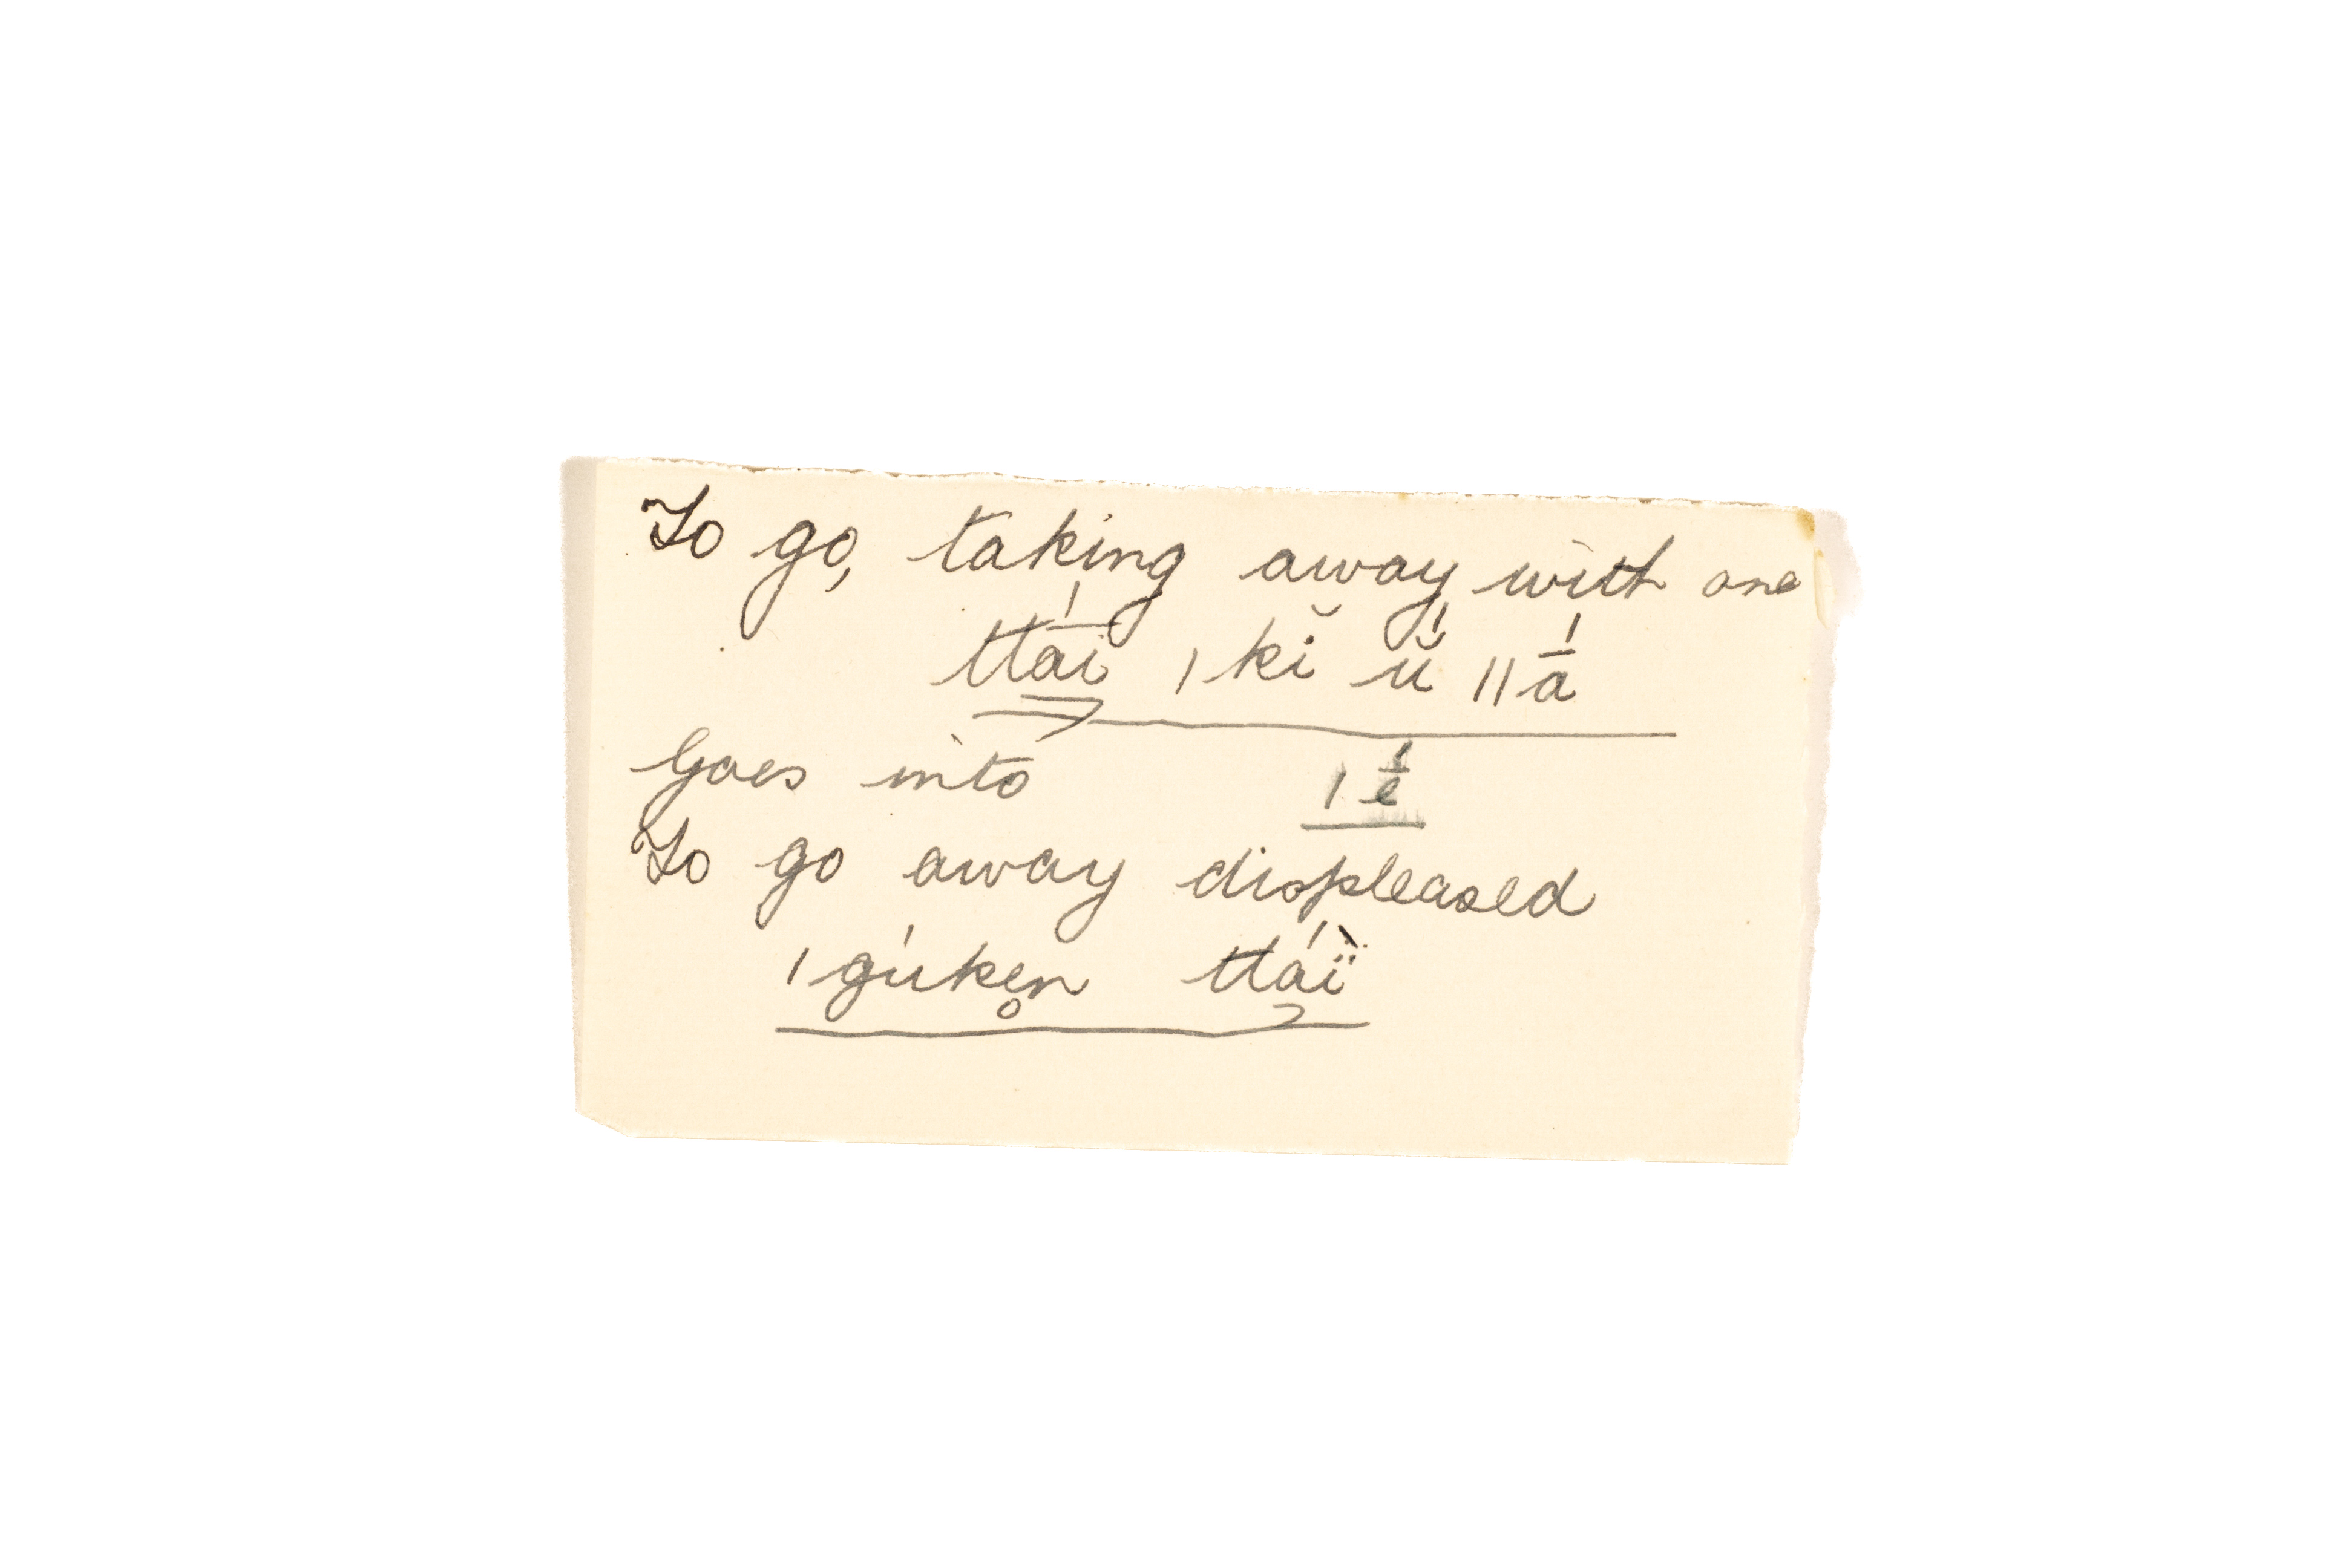 To go, taking away with one
ttā́i ǀkĭ ŭ́ ǁā́
Goes into ǀḗ
To go away displeased
ǀgúken̥ ttáï